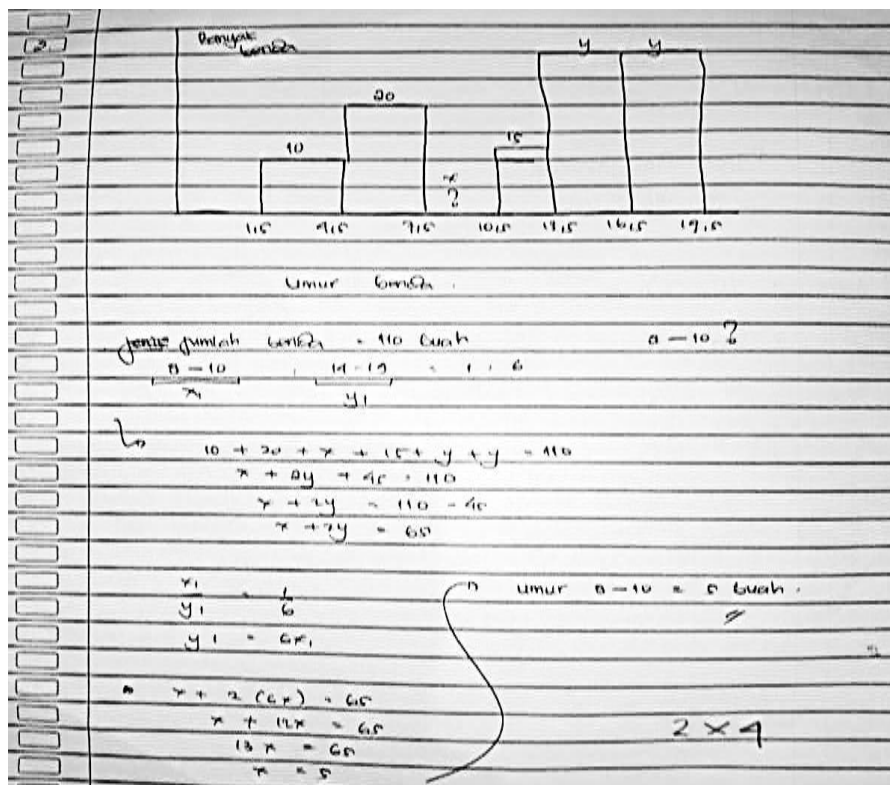 2.
Banyak benda
y y
20
10
15
x
?
1,5 4,5 7,5 10,5 13,5 16,5 19,5
Umur benda
Jumlah benda = 110 buah 8 - 10 ?
8 - 10 : 14 - 19 = 1 : 6
x1 y1
10 + 20 + x + 15 + y + y = 110
x + 2y + 45 = 110
x + 2y = 110 - 45
x + 2y = 65
x1 / y1 = 1 / 6
y1 = 6x1
umur 8 - 10 = 5 buah.
x + 2 (6x) = 65
x + 12x = 65
13x = 65
x = 5
2 x 4